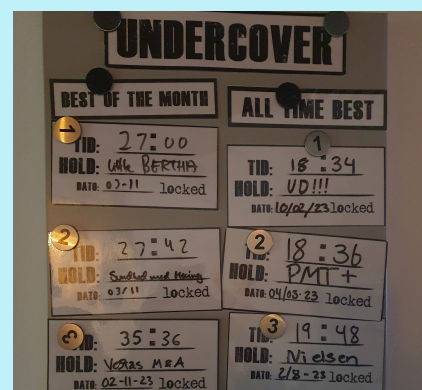 UNDERCOVER
BEST OF THE MONTH
1
TID: 27:00
HOLD: Little BERTHA
DATO: 03-11 locked
2
TID: 27:42
HOLD: Sundhed med Mening
DATO: 03/11 locked
3
TID: 35:36
HOLD: Veras M&A
DATO: 02-11-23 locked
ALL TIME BEST
1
TID: 18:34
HOLD: UD!!!
DATO: 10/02/23 locked
2
TID: 18:36
HOLD: PMT+
DATO: 04/03-23 locked
3
TID: 19:48
HOLD: Nielsen
DATO: 2/8-23 locked